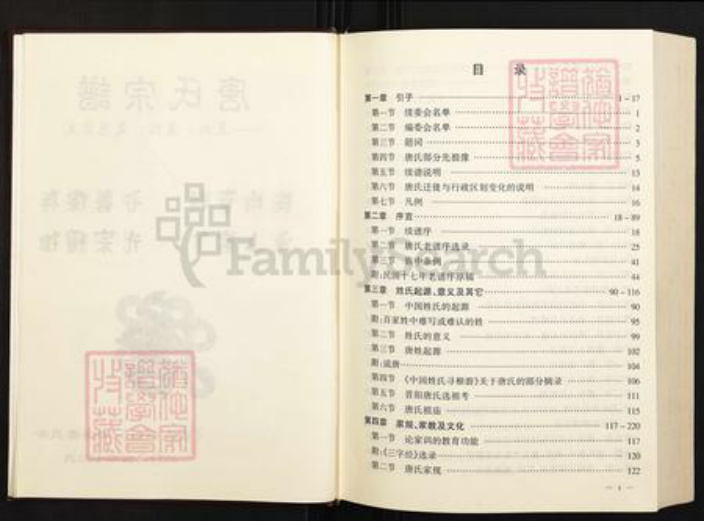 唐氏宗譜
目 录
第一章 引子 1－17
第一节 续委会名单 1
第二节 编委会名单 2
第三节 题词 3
第四节 唐氏部分先祖像 5
第五节 续谱说明 13
第六节 唐氏迁徙与行政区划变化的说明 14
第七节 凡例 16
第二章 序言 18－89
第一节 续谱序 18
第二节 唐氏老谱序选录 25
第三节 族中条例 41
附:民国十七年老谱序原稿 44
第三章 姓氏起源、意义及其它 90－116
第一节 中国姓氏的起源 90
附:百家姓中难写或难认的姓 95
第二节 姓氏的意义 99
第三节 唐姓起源 102
附:说唐 104
第四节 《中国姓氏寻根游》关于唐氏的部分摘录 106
第五节 晋阳唐氏选祖考 111
第六节 唐氏祖庙 115
第四章 家规、家教及文化 117－220
第一节 论家训的教育功能 117
附:《三字经》选录 120
第二节 唐氏家规 122
－ 1 －
FamilySearch